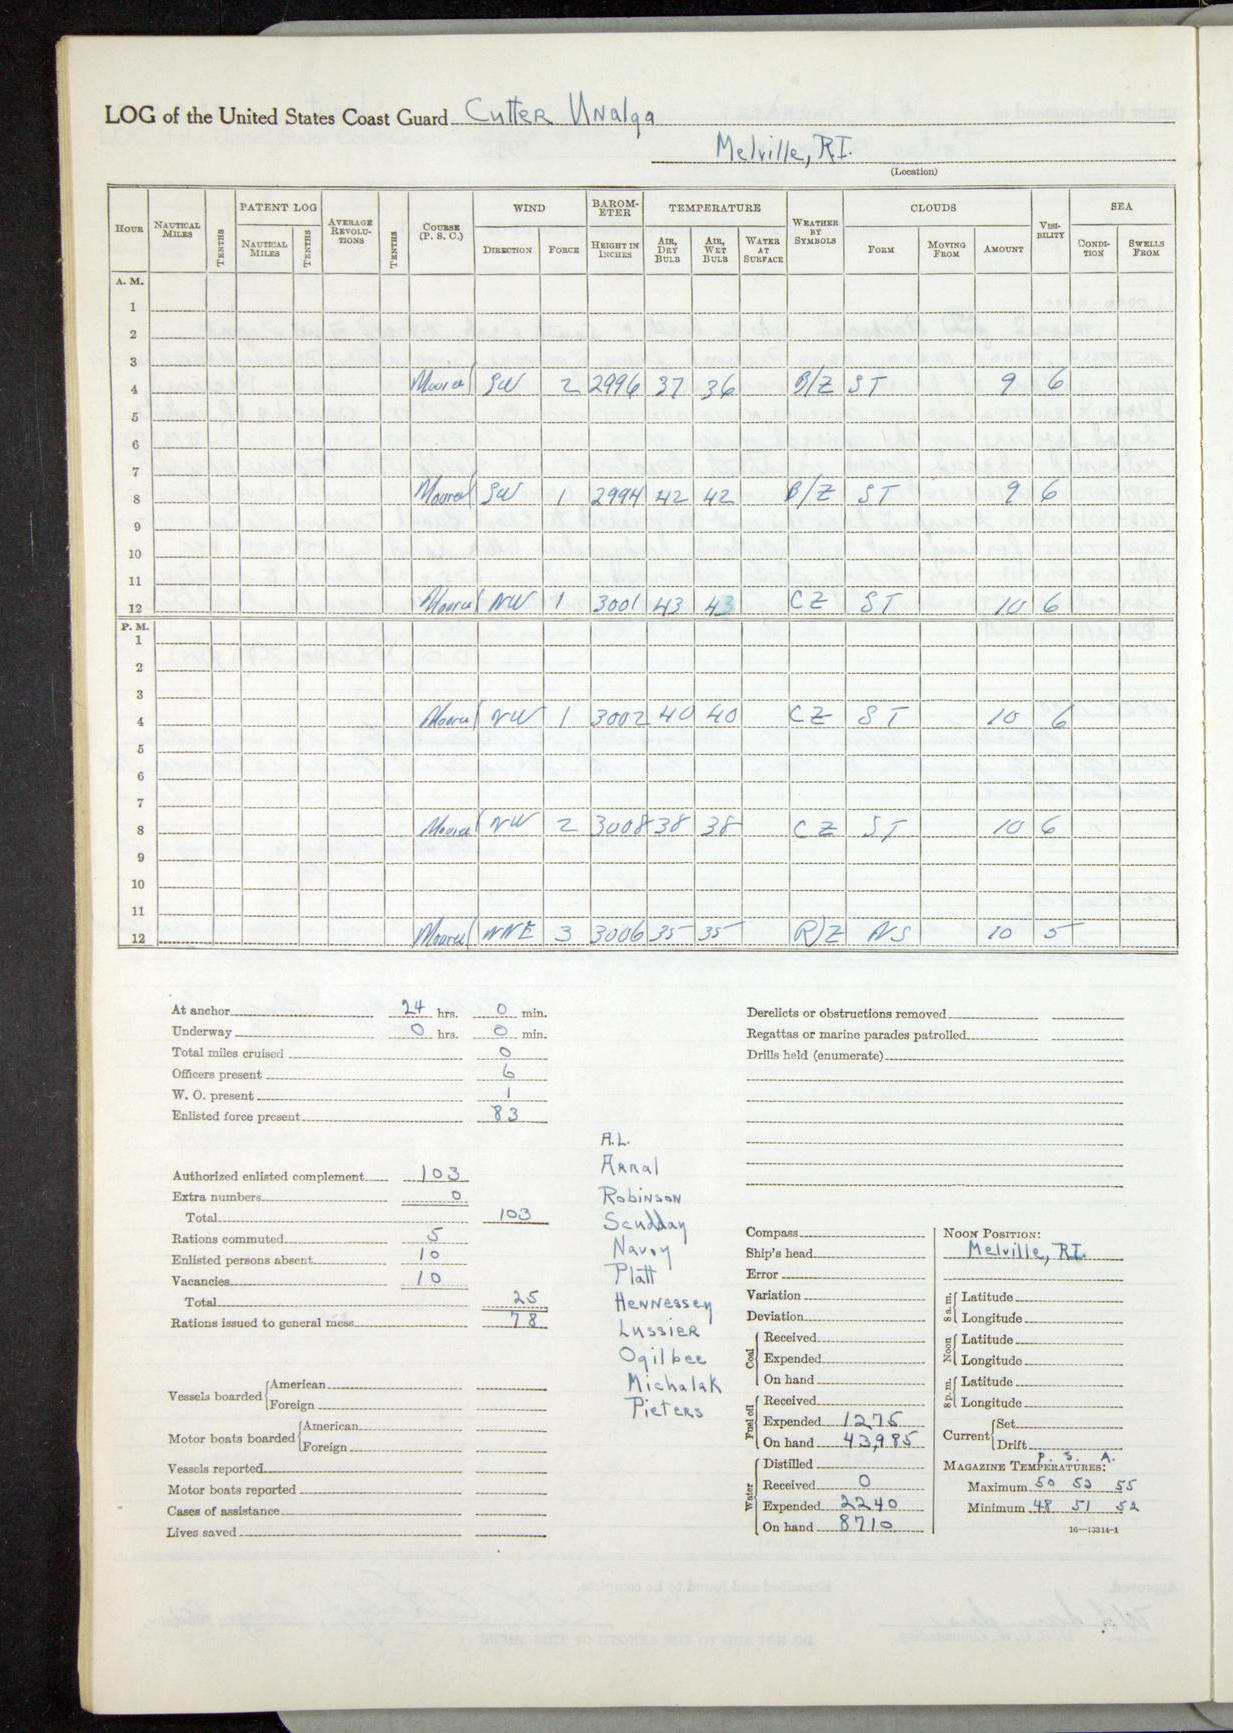 LOG of the United States Coast Guard Cutter Unalga
Melville, R.I.
(Location)
HOUR NAUTICAL MILES TENTHS PATENT LOG NAUTICAL MILES TENTHS AVERAGE REVOLU-TIONS TENTHS COURSE (P. S. C.) WIND DIRECTION FORCE BAROM-ETER HEIGHT IN INCHES TEMPERATURE AIR, DRY BULB AIR, WET BULB WATER AT SURFACE WEATHER BY SYMBOLS CLOUDS FORM MOVING FROM AMOUNT VISI-BILITY SEA CONDI-TION SWELLS FROM
A. M.
1
2
3
4 Moored SW 2 2996 37 36 B/Z ST 9 6
5
6
7
8 Moored SW 1 2994 42 42 B/Z ST 9 6
9
10
11
12 Moored NW 1 3001 43 43 CZ ST 10 6
P. M.
1
2
3
4 Moored NW 1 3002 40 40 CZ ST 10 6
5
6
7
8 Moored NW 2 3008 38 38 CZ ST 10 6
9
10
11
12 Moored NNE 3 3006 35 35 R/Z NS 10 5
At anchor 24 hrs. 0 min.
Underway 0 hrs. 0 min.
Total miles cruised 0
Officers present 6
W. O. present 1
Enlisted force present 83
Authorized enlisted complement 103
Extra numbers 0
Total 103
Rations commuted 5
Enlisted persons absent 10
Vacancies 10
Total 25
Rations issued to general mess 78
Vessels boarded American
Foreign
Motor boats boarded American
Foreign
Vessels reported
Motor boats reported
Cases of assistance
Lives saved
A.L.
Arral
Robinson
Navoy
Platt
Hennessey
Lussier
Ogilbee
Michalak
Pieters
Derelicts or obstructions removed
Regattas or marine parades patrolled
Drills held (enumerate)
Compass
Ship's head
Error
Variation
Deviation
Coal Received
Expended
On hand
Fuel oil Received
Expended 1275
On hand 43,985
Water Distilled
Received 0
Expended 2240
On hand 8710
NOON POSITION:
Melville, R.I.
8 a. m. Latitude
Longitude
Noon Latitude
Longitude
8 p. m. Latitude
Longitude
Current Set
Drift
P. S. A.
MAGAZINE TEMPERATURES:
Maximum 50 52 55
Minimum 48 51 52
16—13314-1